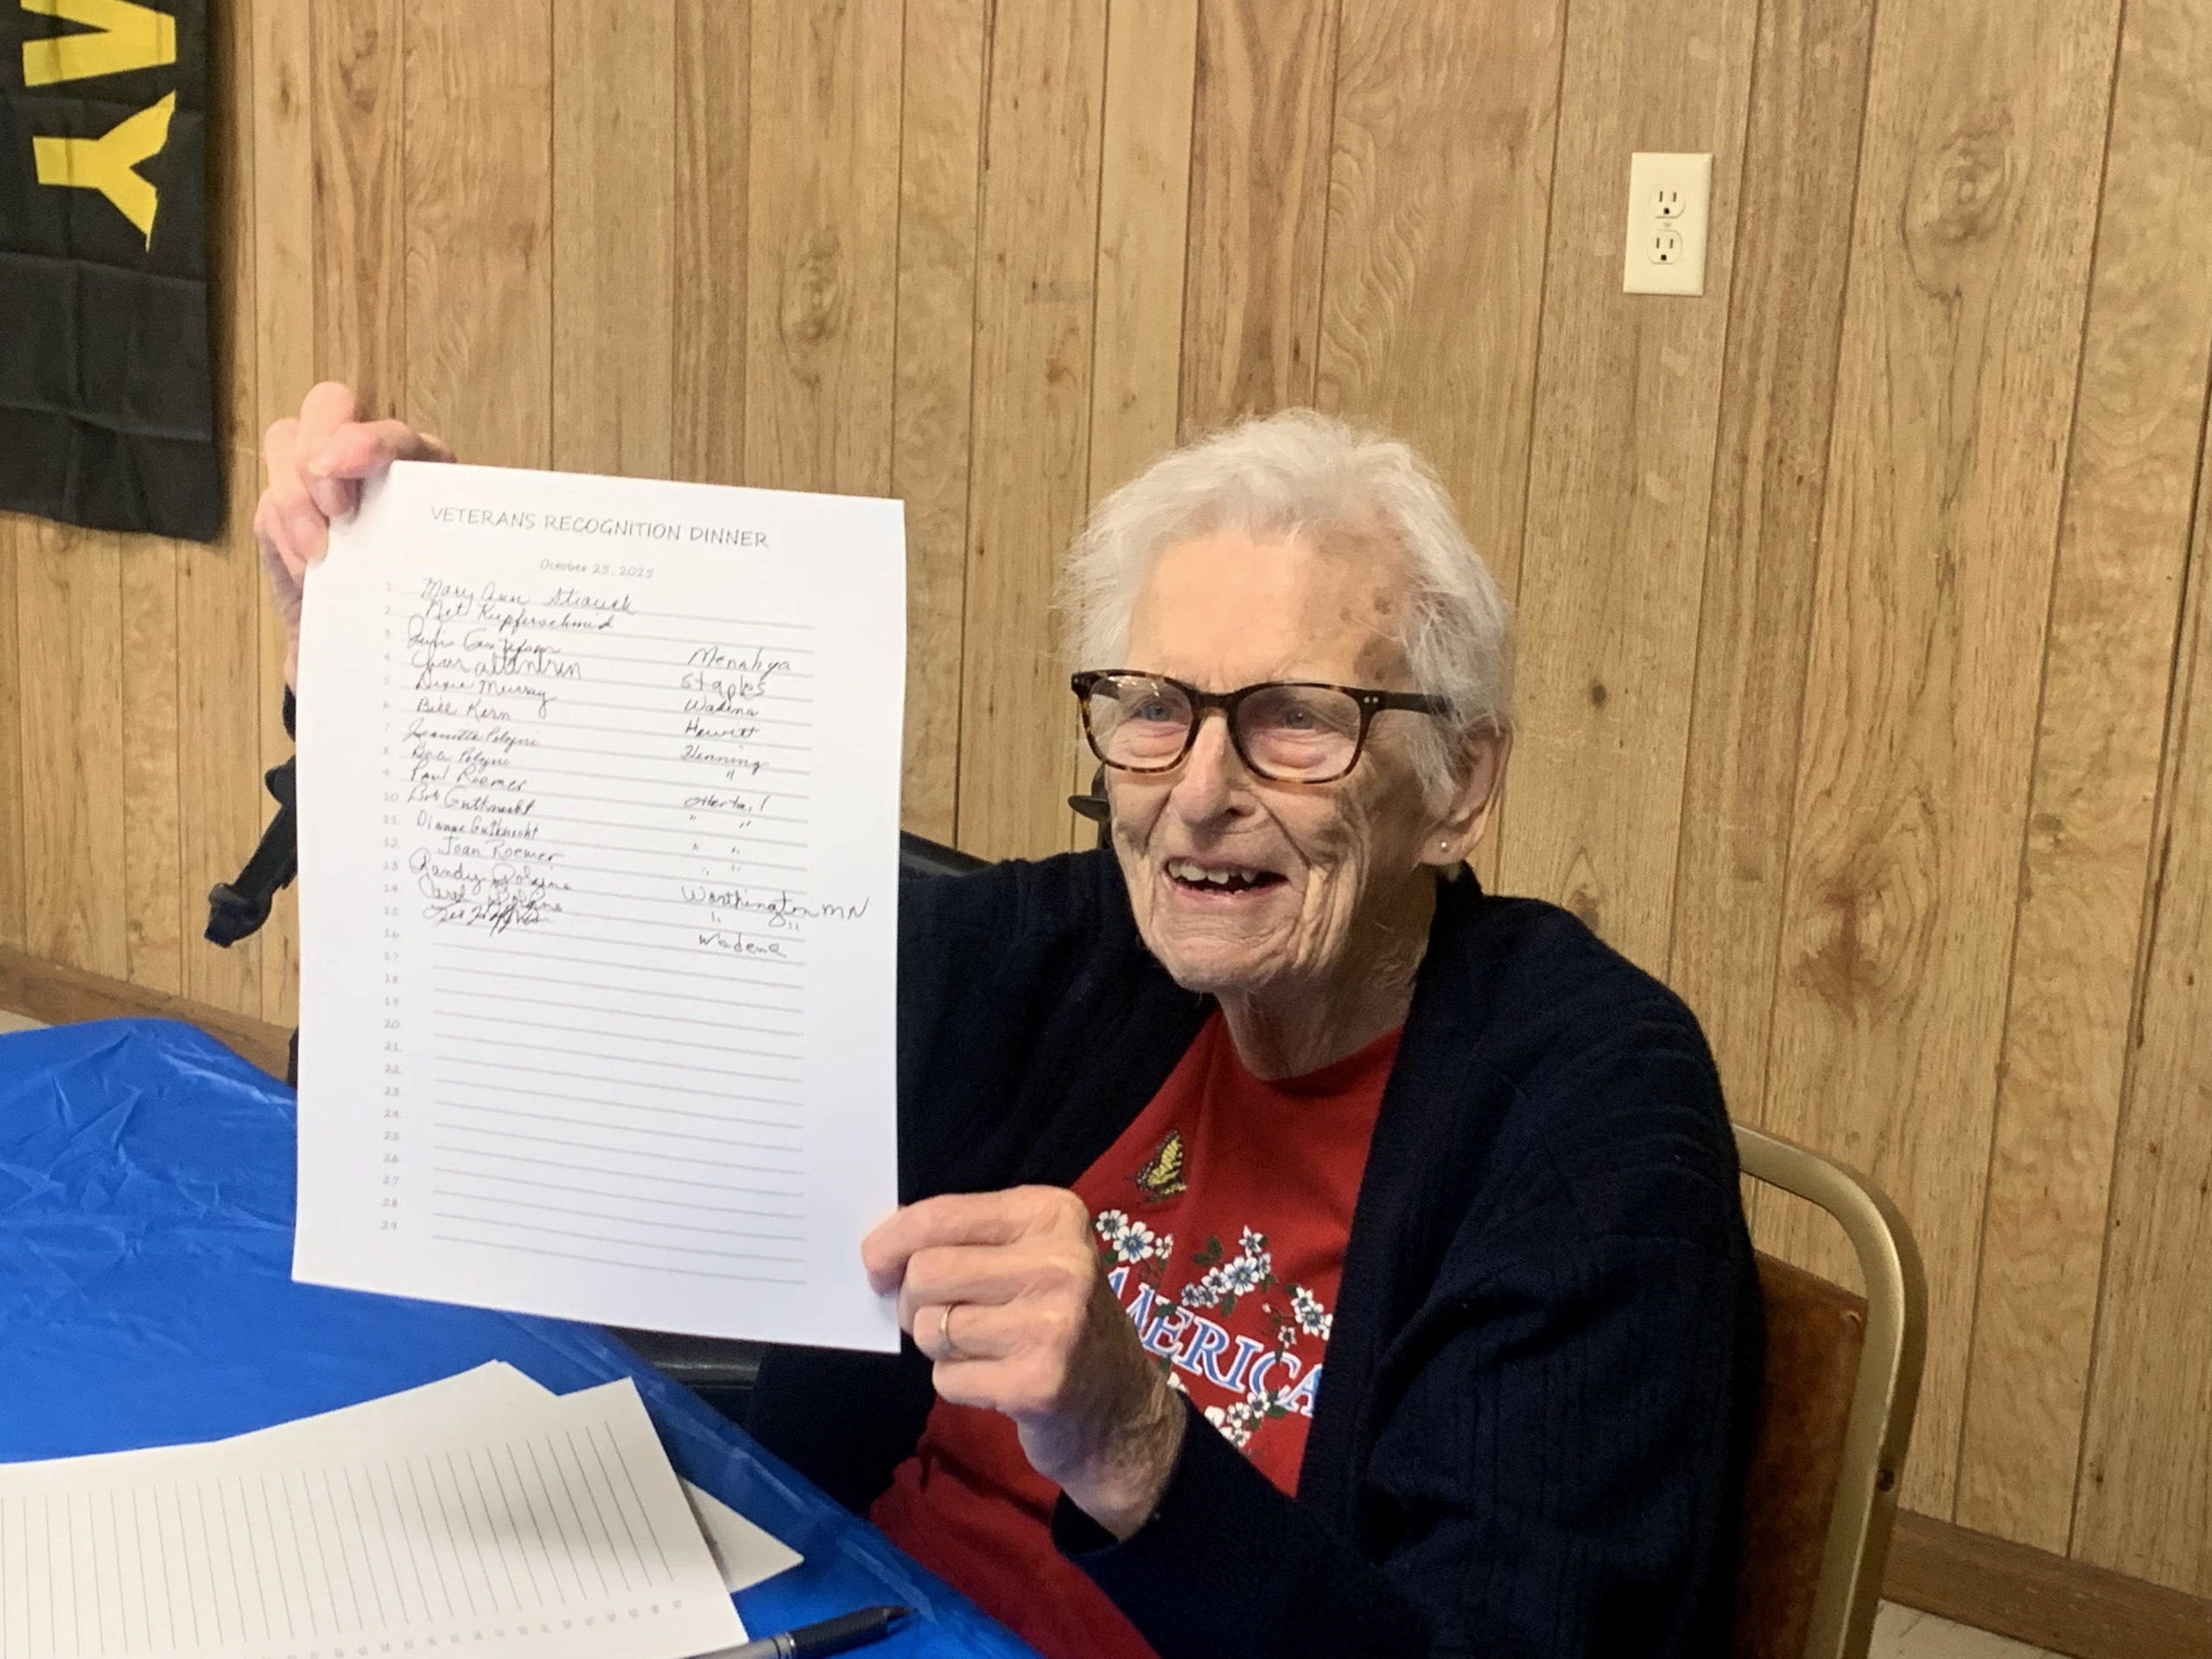 VETERANS RECOGNITION DINNER
October 25, 2025
1. Mary Ann
2. Kupferschmid
3. Menahga
4. Staples
5. Dixie Murray Wadena
6. Bill Kern Hewitt
7. Jeanette Henning
8. "
9. Paul Roemer Ottertail
10. Bob Gutknecht " "
11. Dianne Gutknecht " "
12. Joan Roemer " "
13. Randy Worthington MN
14. Carol " "
15. Wadena
16.
17.
18.
19.
20.
21.
22.
23.
24.
25.
26.
27.
28.
29.
AMERICA